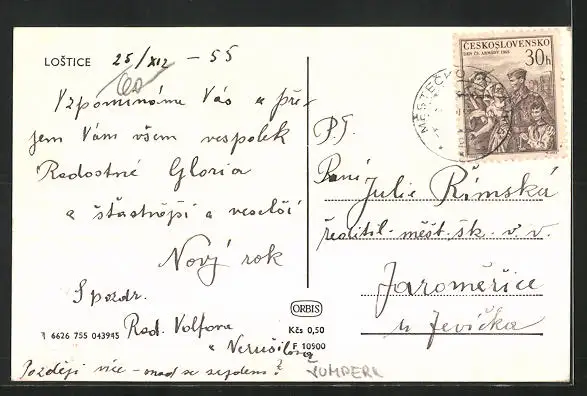 LOŠTICE
25/XII - 55
Vzpomínáme Vás a pře-
jem Vám všem vespolek
Radostné Gloria
a šťastnější a veselší
Nový rok
Spozdr.
Rad. Volfova
a Verušilova
Později více - snad se sejdem?
6626 755 043945
ORBIS
Kčs 0,50
F 10900
ČESKOSLOVENSKO
DEN ČS. ARMÁDY 1955
30h
MĚSTEČKO
P.T.
Paní Julie Římská
ředitel. měšť. šk. v. v.
Jaroměřice
u Jevíčka
ŠUMPERK